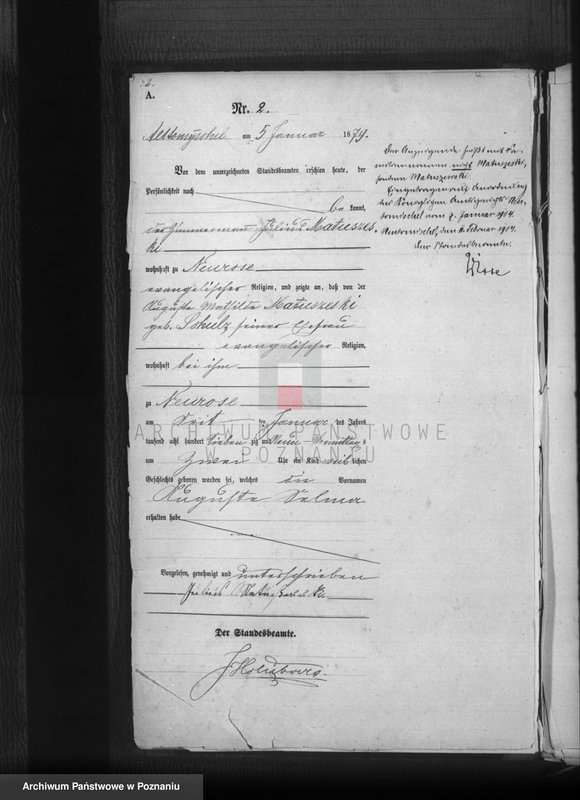 2.
A.
Nr. 2.
am 5 Januar 1879.
Vor dem unterzeichneten Standesbeamten erschien heute, der
Persönlichkeit nach
be kannt,
der Zimmermann Julius Matuszes
ki
wohnhaft zu Neurose
evangelischer Religion, und zeigte an, daß von der
Auguste Mathilde Matuszeski
geb. Schulz seiner Ehefrau
evangelischer Religion,
wohnhaft bei ihm
zu Neurose
am Januar des Jahres
tausend acht hundert sieben zig und neun Vormittag s
um zwei Uhr ein Kind weib lichen
Geschlechts geboren worden sei, welches die Vornamen
Auguste Selma
erhalten habe
Vorgelesen, genehmigt und unterschrieben
Julius
Der Standesbeamte.
Der Anzeigende heißt mit Fa-
miliennamen nicht Matuszeski,
sondern Matuszewski
Eingetragen auf Anordnung
des Königlichen Amtsgerichts Neu-
tomischel vom 7. Januar 1904.
Neutomischel, den Februar 1904.
Der Standesbeamte.
ARCHIWUM PAŃSTWOWE
W POZNANIU
Archiwum Państwowe w Poznaniu